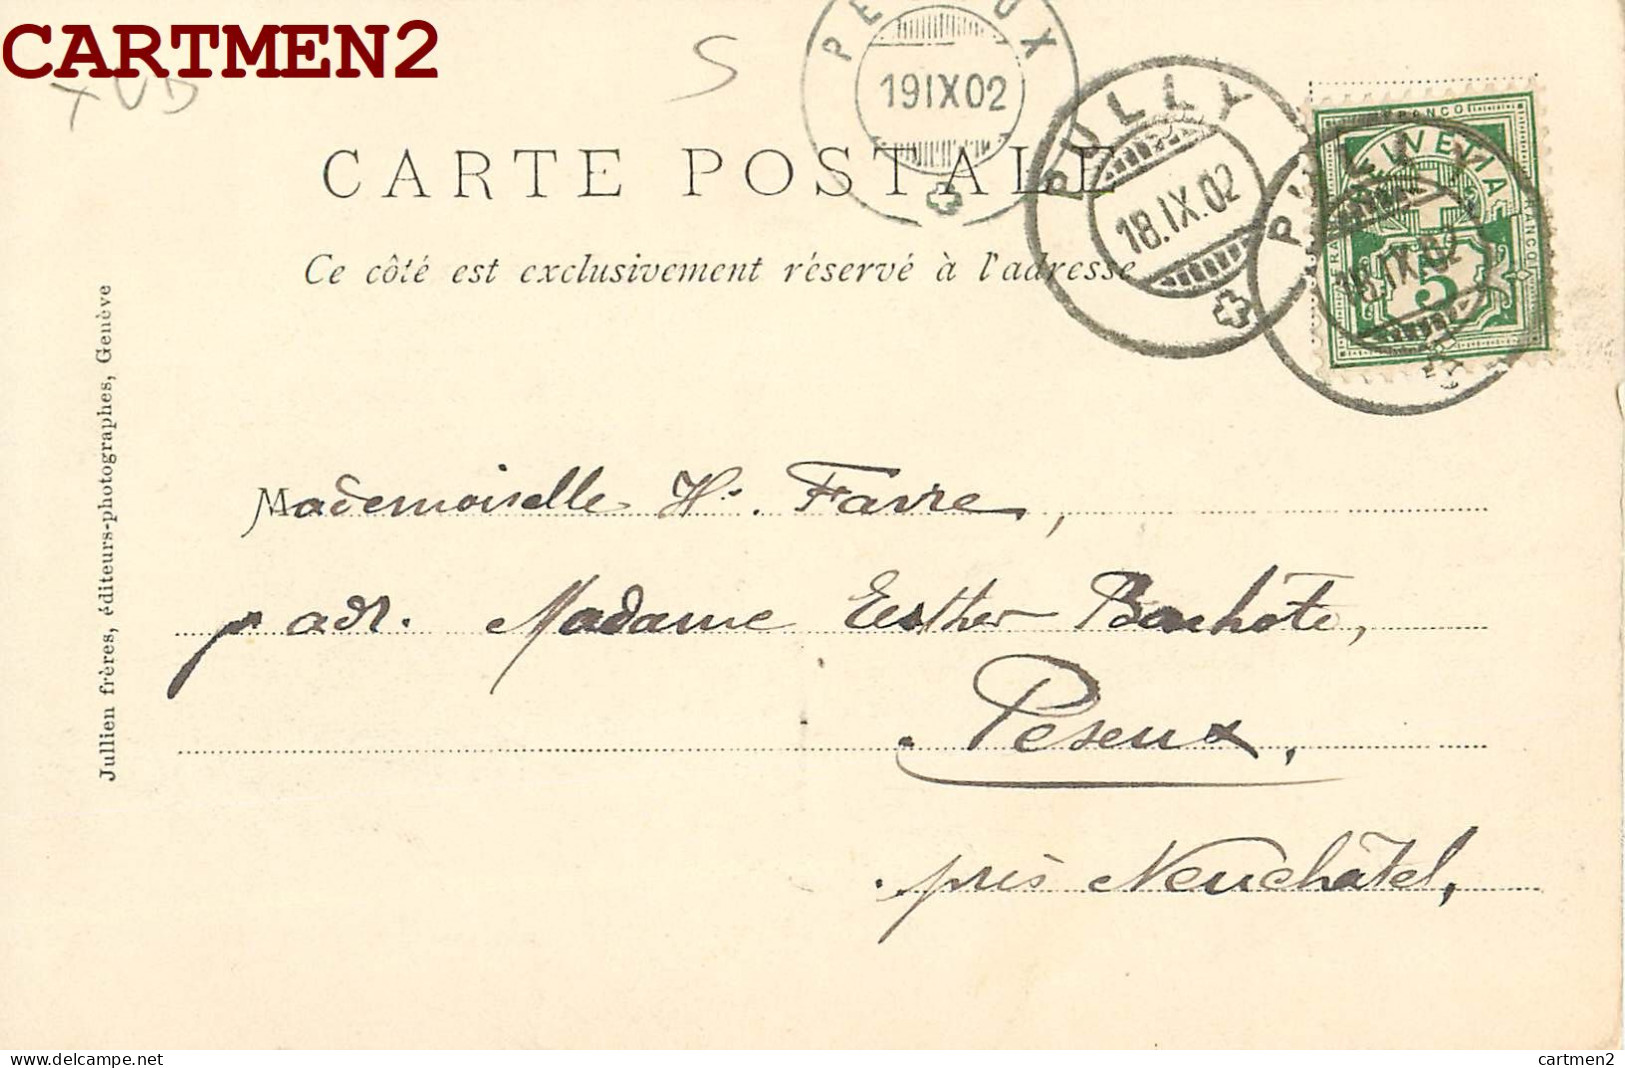 CARTMEN2
XVD
S
PESEUX
19 IX 02
PULLY
18.IX.02
PULLY
18.IX.02
FRANCO
HELVETIA
FRANCO
FRANCO
5
CARTE POSTALE
Ce côté est exclusivement réservé à l'adresse
Jullien frères, éditeurs-photographes, Genève
Mademoiselle H. Favre,
p adr. Madame Esther Bonhôte,
Peseux,
près Neuchâtel,
delcampe.net
cartmen2